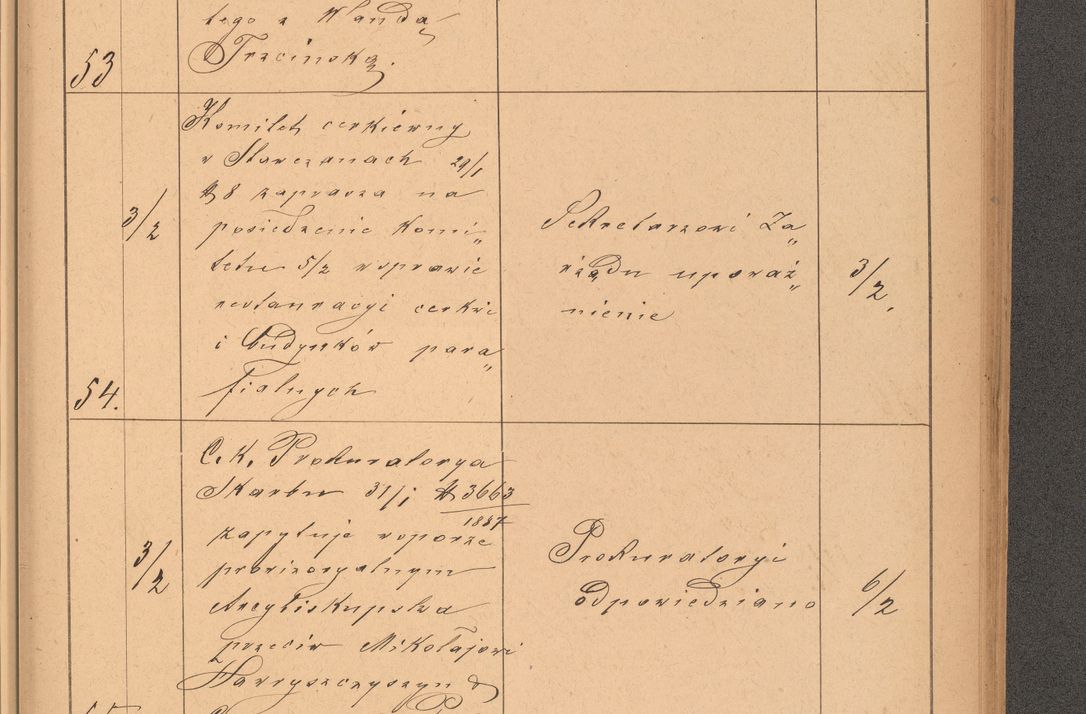 tego z Wandą
Trzcinską.
53
Komitet cerkiewny
w Starczanach 29/1
8 zaprasza na
3/2
posiedzenie Komi„
tetu 5/2 w sprawie
restauracyi cerkwi
i budynków para„
fialnych
54.
Sekretarzowi Za„
rządu upoważ„
nienie
3/2.
C. K. Prokuratorya
Skarbu 31/1 № 3663
1887
zapytuje w sporze
3/2
prowizoryalnym
Arcybiskupstwa
przeciw Mikołajowi
Hawryszczyszyn
Prokuratoryi
odpowiedziano
6/2